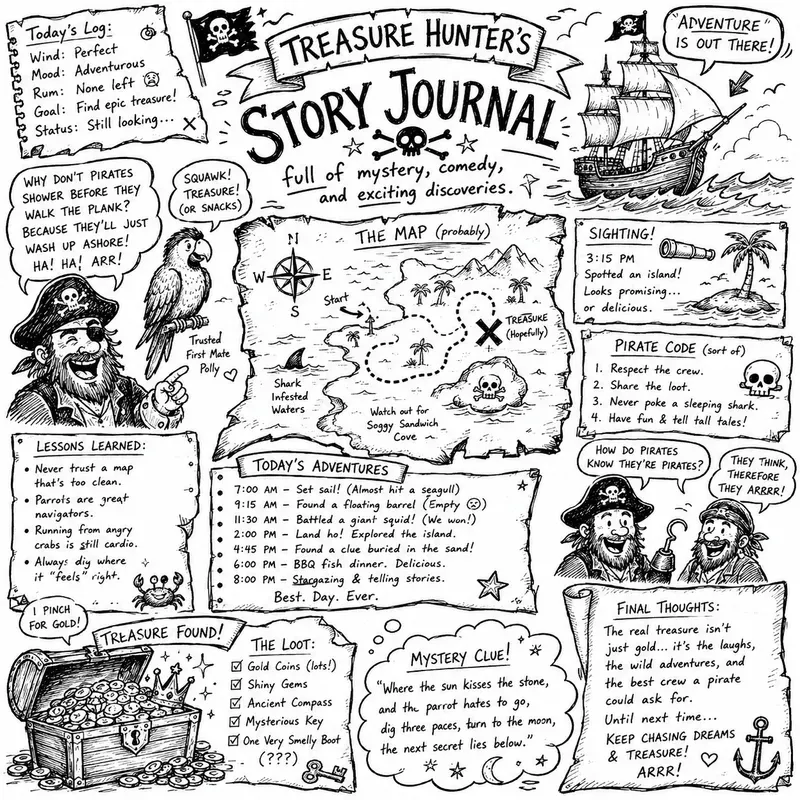 Today's Log:
Wind: Perfect
Mood: Adventurous
Rum: None left
Goal: Find epic treasure!
Status: Still looking...
TREASURE HUNTER'S
STORY JOURNAL
full of mystery, comedy,
and exciting discoveries.
"ADVENTURE"
IS OUT THERE!
WHY DON'T PIRATES
SHOWER BEFORE THEY
WALK THE PLANK?
BECAUSE THEY'LL JUST
WASH UP ASHORE!
HA! HA! ARR!
SQUAWK!
TREASURE!
(OR SNACKS)
Trusted
First Mate
Polly
THE MAP (probably)
N
W
E
S
Start
TREASURE
(Hopefully)
Shark
Infested
Waters
Watch out for
Soggy Sandwich
Cove
SIGHTING!
3:15 PM
Spotted an island!
Looks promising...
or delicious.
PIRATE CODE (sort of)
1. Respect the crew.
2. Share the loot.
3. Never poke a sleeping shark.
4. Have fun & tell tall tales!
LESSONS LEARNED:
• Never trust a map
that's too clean.
• Parrots are great
navigators.
• Running from angry
crabs is still cardio.
• Always dig where
it "feels" right.
TODAY'S ADVENTURES
7:00 AM – Set sail! (Almost hit a seagull)
9:15 AM – Found a floating barrel (Empty ☹)
11:30 AM – Battled a giant squid! (We won!)
2:00 PM – Land ho! Explored the island.
4:45 PM – Found a clue buried in the sand!
6:00 PM – BBQ fish dinner. Delicious.
8:00 PM – Stargazing & telling stories.
Best. Day. Ever.
HOW DO PIRATES
KNOW THEY'RE PIRATES?
THEY THINK,
THEREFORE
THEY ARRRR!
I PINCH
FOR GOLD!
TREASURE FOUND!
THE LOOT:
☑ Gold Coins (lots!)
☑ Shiny Gems
☑ Ancient Compass
☑ Mysterious Key
☑ One Very Smelly Boot
(???)
MYSTERY CLUE!
"Where the sun kisses the stone,
and the parrot hates to go,
dig three paces, turn to the moon,
the next secret lies below."
FINAL THOUGHTS:
The real treasure isn't
just gold... it's the laughs,
the wild adventures, and
the best crew a pirate
could ask for.
Until next time...
KEEP CHASING DREAMS
& TREASURE!
ARRR!